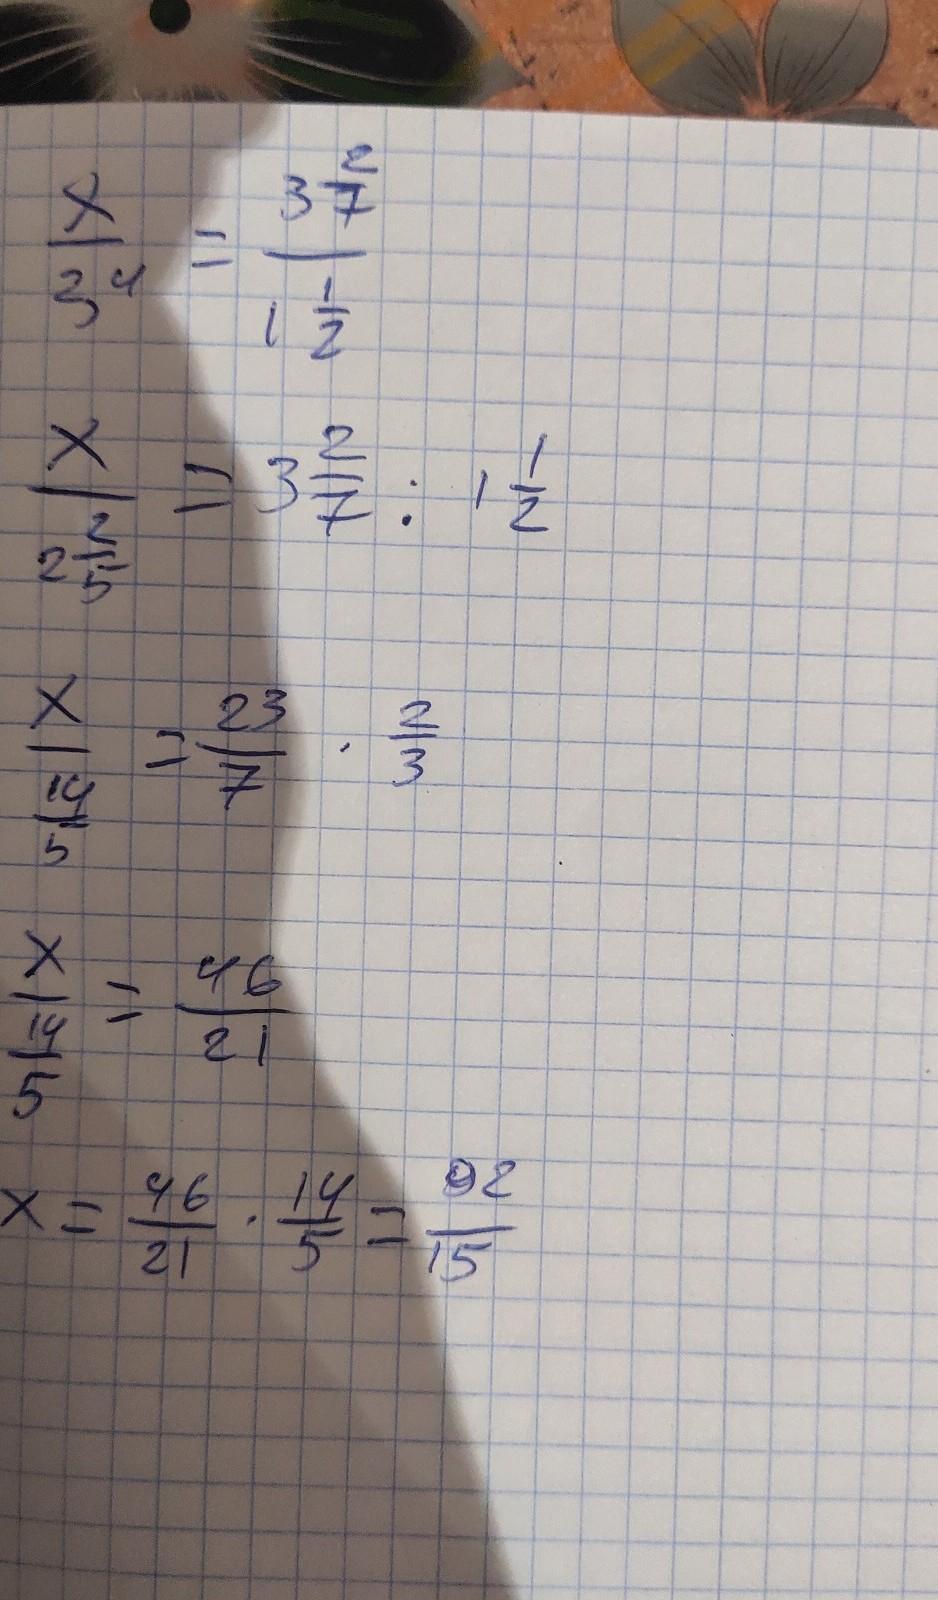 x/3^4 = 3 2/7 / 1 1/2
x/2 2/5 = 3 2/7 : 1 1/2
x/14/5 = 23/7 · 2/3
x/14/5 = 46/21
x = 46/21 · 14/5 = 92/15